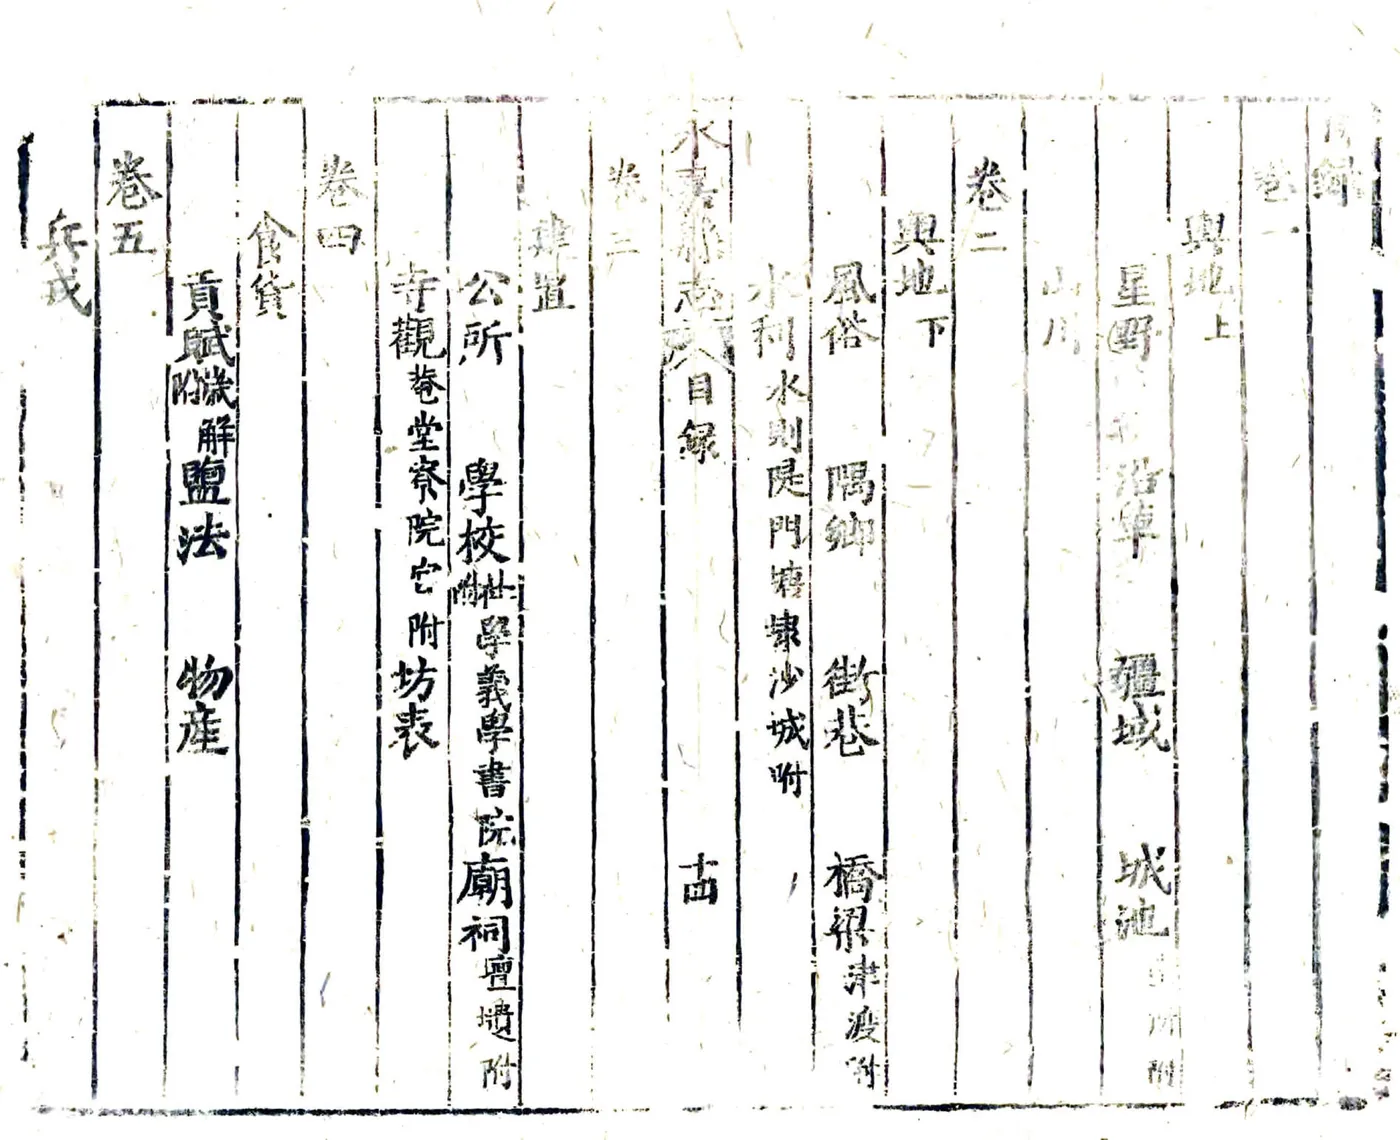 目錄
卷一
輿地上
星野 沿革 疆域 城池 附
山川
卷二
輿地下
風俗 隅鄉 街巷 橋梁津渡附
水利水則陡門塘埭沙城附
永嘉縣志 目錄 十四
卷三
建置
公所 學校社學義學書院附 廟祠壇壝附
寺觀菴堂寮院宅附坊表
卷四
食貨
貢賦解附 鹽法 物產
卷五
兵戎